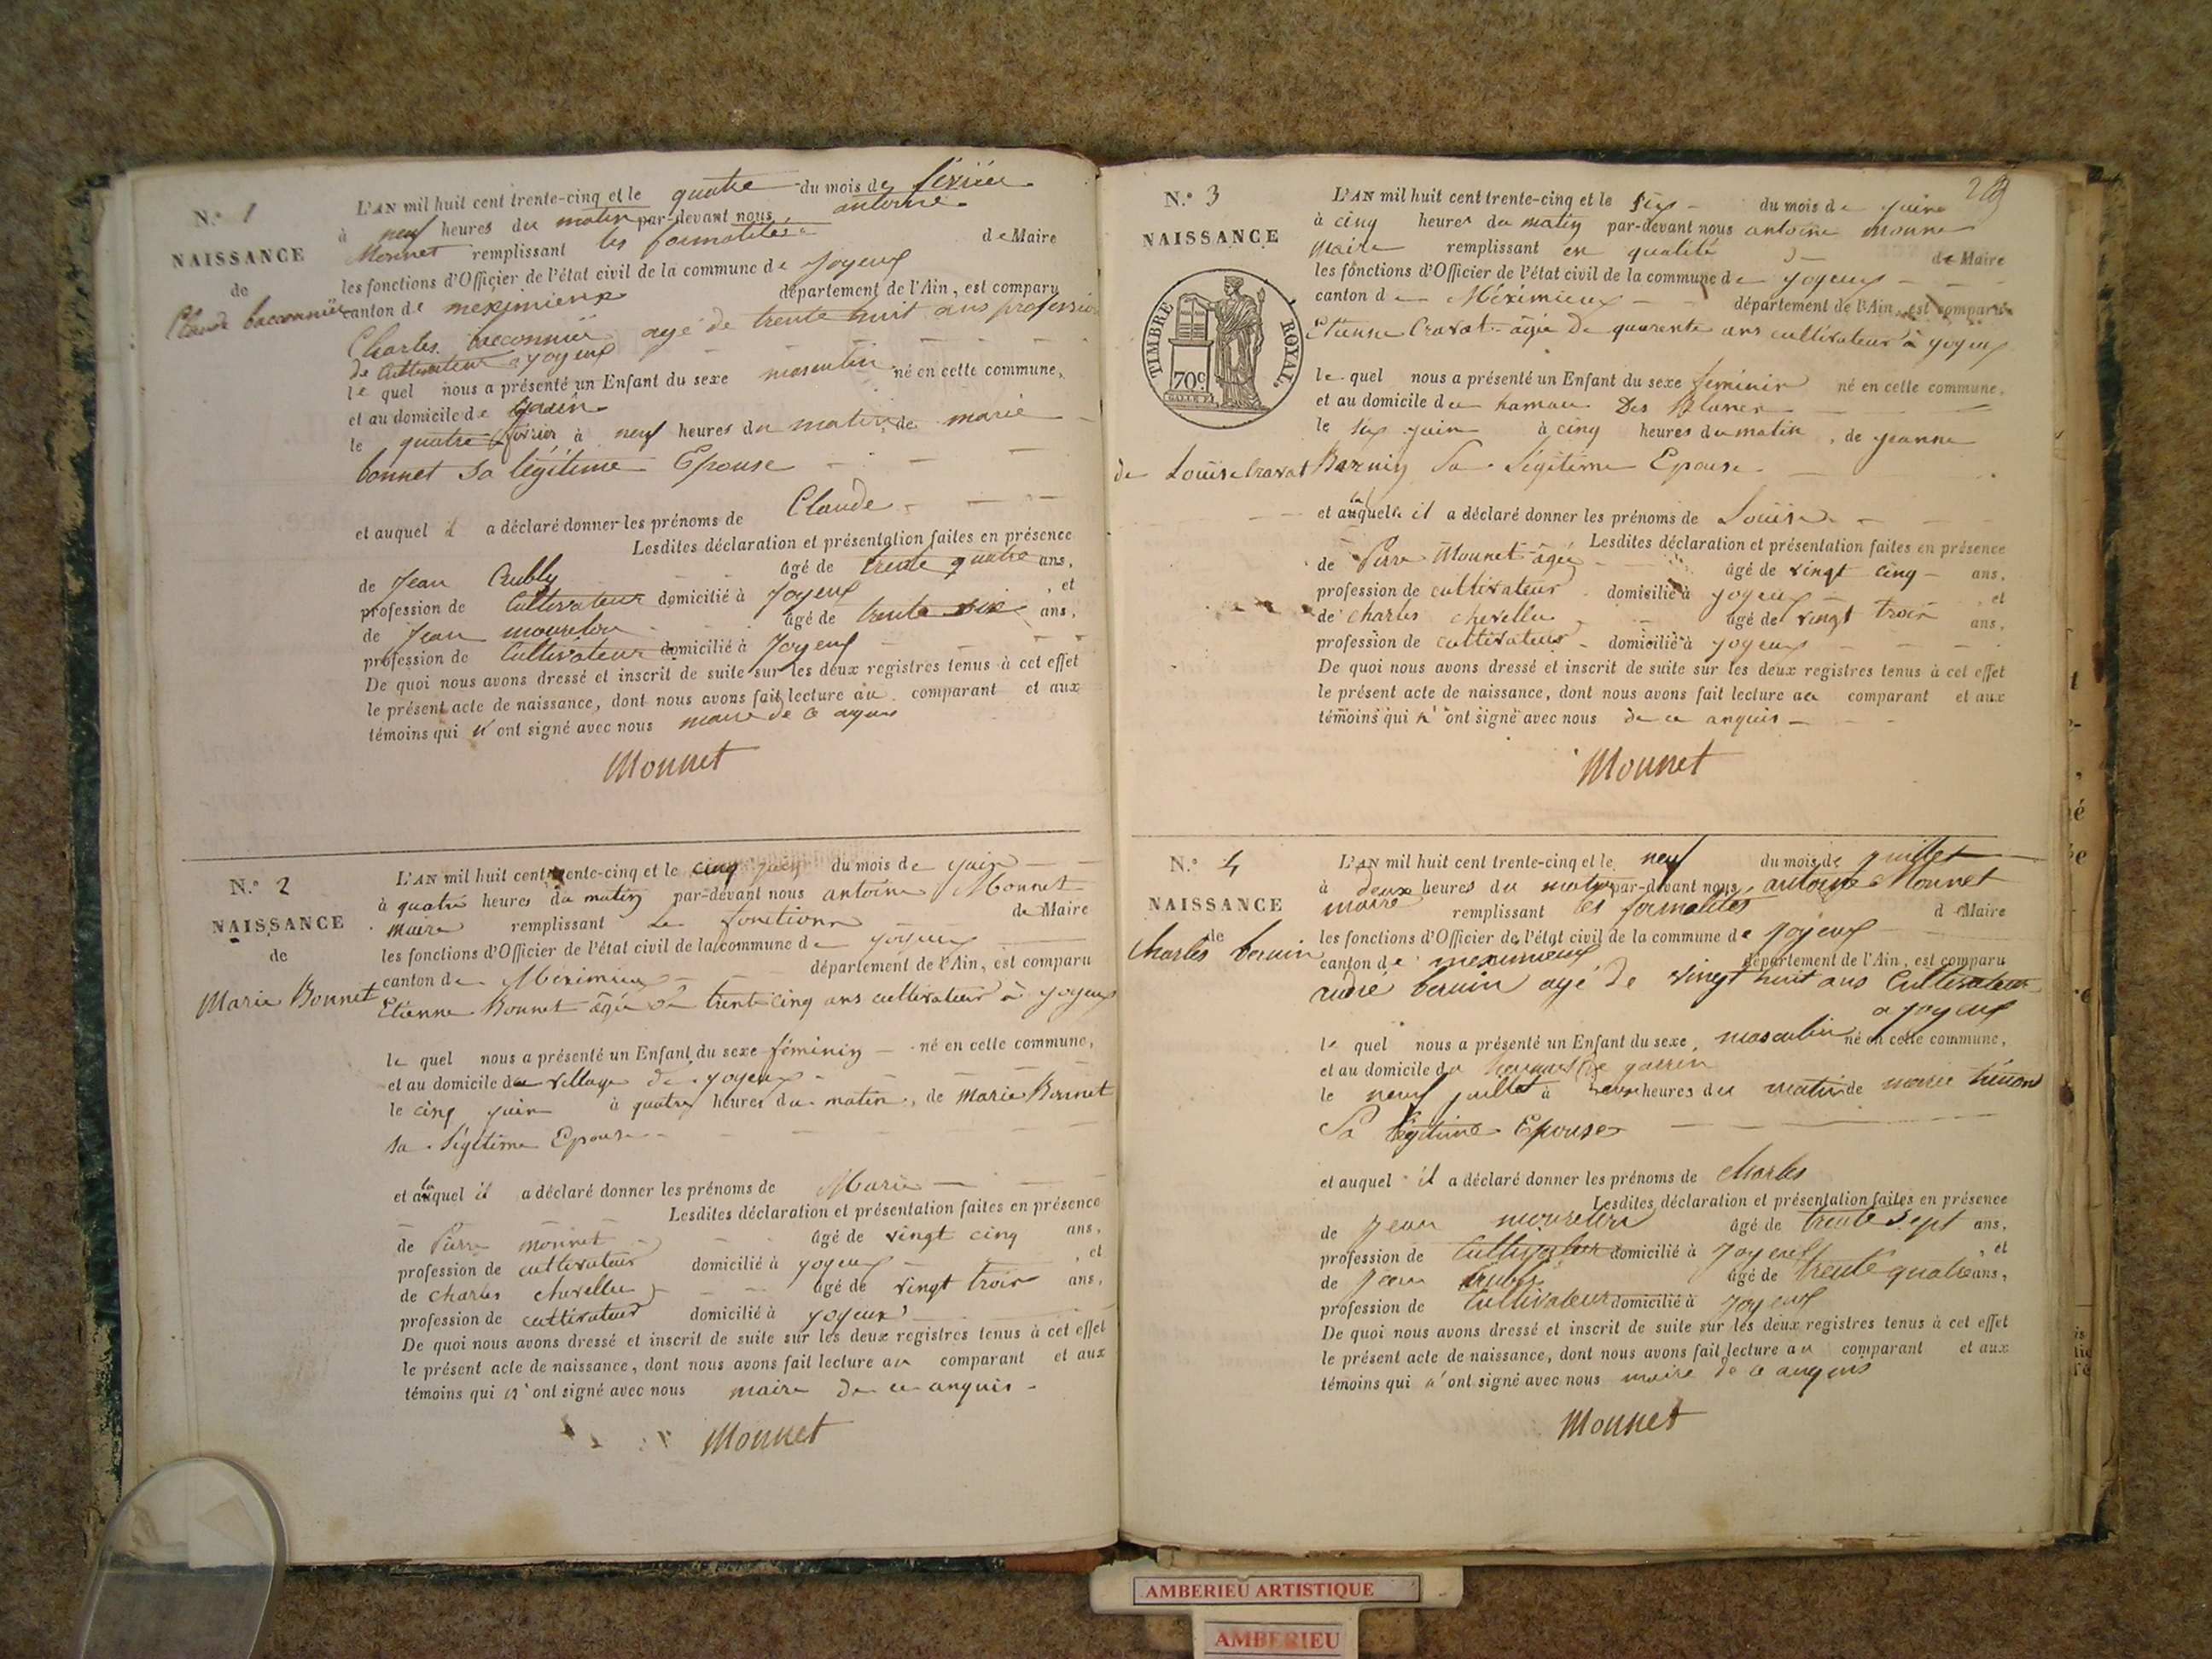 N.° 1
NAISSANCE
de
Claude baconnier
L'AN mil huit cent trente-cinq et le quatre du mois de février
à neuf heures du matin par-devant nous antoine
Monnet remplissant les formalités de Maire
les fonctions d'Officier de l'état civil de la commune de Joyeux
canton de meximieux département de l'Ain, est comparu
Charles baconnier agé de trente huit ans profession
de Cultivateur a joyeux
le quel nous a présenté un Enfant du sexe masculin né en cette commune,
et au domicile de
le quatre février à neuf heures du matin, de marie
bonnet sa légitime Epouse
et auquel il a déclaré donner les prénoms de Claude
Lesdites déclaration et présentation faites en présence
de Jean âgé de trente quatre ans,
profession de Cultivateur domicilié à Joyeux, et
de Jean mourelon âgé de trente six ans,
profession de Cultivateur domicilié à Joyeux
De quoi nous avons dressé et inscrit de suite sur les deux registres tenus à cet effet
le présent acte de naissance, dont nous avons fait lecture au comparant et aux
témoins qui n'ont signé avec nous maire de ce
Monnet
N.° 2
NAISSANCE
de
Marie Bonnet
L'AN mil huit cent trente-cinq et le cinq juin du mois de juin
à quatre heures du matin par-devant nous antoine Monnet
Maire remplissant Le fonctions de Maire
les fonctions d'Officier de l'état civil de la commune de joyeux
canton de Méximieux département de l'Ain, est comparu
Etienne Bonnet âgé de trente cinq ans cultivateur à joyeux
le quel nous a présenté un Enfant du sexe féminin né en cette commune,
et au domicile du village de joyeux
le cinq juin à quatre heures du matin, de Marie Bonnet
sa Légitime Epouse
et a la quel il a déclaré donner les prénoms de Marie
Lesdites déclaration et présentation faites en présence
de Pierre Monnet âgé de vingt cinq ans,
profession de cultivateur domicilié à joyeux, et
de charles chevellu âgé de vingt trois ans,
profession de cultivateur domicilié à joyeux
De quoi nous avons dressé et inscrit de suite sur les deux registres tenus à cet effet
le présent acte de naissance, dont nous avons fait lecture au comparant et aux
témoins qui n'ont signé avec nous maire de ce anquis
Monnet
N.° 3
NAISSANCE
TIMBRE ROYAL.
70c
de Louise Cravat
L'AN mil huit cent trente-cinq et le six du mois de juin
à cinq heures du matin par-devant nous antoine monne
Maire remplissant en qualité de Maire
les fonctions d'Officier de l'état civil de la commune de joyeux
canton de Méximieux département de l'Ain, est comparu
Etienne Cravat âgé de quarente ans cultivateur à joyeux
le quel nous a présenté un Enfant du sexe féminin né en cette commune,
et au domicile du hamau Des
le six juin à cinq heures du matin, de jeanne
Bernin Sa Légitime Epouse
et a la quelle il a déclaré donner les prénoms de Louise
Lesdites déclaration et présentation faites en présence
de Pierre Monnet âgé âgé de vingt cinq ans,
profession de cultivateur domicilié à joyeux, et
de charles chevellu âgé de vingt trois ans,
profession de cultivateur domicilié à joyeux
De quoi nous avons dressé et inscrit de suite sur les deux registres tenus à cet effet
le présent acte de naissance, dont nous avons fait lecture au comparant et aux
témoins qui n'ont signé avec nous de ce anquis
Monnet
N.° 4
NAISSANCE
de
Charles bernin
L'AN mil huit cent trente-cinq et le neuf du mois de juillet
à deux heures du matin par-devant nous antoine Monnet
maire remplissant les formalités de Maire
les fonctions d'Officier de l'état civil de la commune de Joyeux
canton de meximieux département de l'Ain, est comparu
andré bernin agé de vingt huit ans Cultivateur
a joyeux
le quel nous a présenté un Enfant du sexe masculin né en cette commune,
et au domicile du
le neuf juillet à deux heures du matin de marie
Sa légitime Epouse
et auquel il a déclaré donner les prénoms de Charles
Lesdites déclaration et présentation faites en présence
de Jean mourelon âgé de trente sept ans,
profession de Cultivateur domicilié à Joyeux, et
de Jean âgé de trente quatre ans,
profession de Cultivateur domicilié à Joyeux
De quoi nous avons dressé et inscrit de suite sur les deux registres tenus à cet effet
le présent acte de naissance, dont nous avons fait lecture au comparant et aux
témoins qui n'ont signé avec nous maire de ce anquis
Monnet
AMBERIEU ARTISTIQUE
AMBERIEU